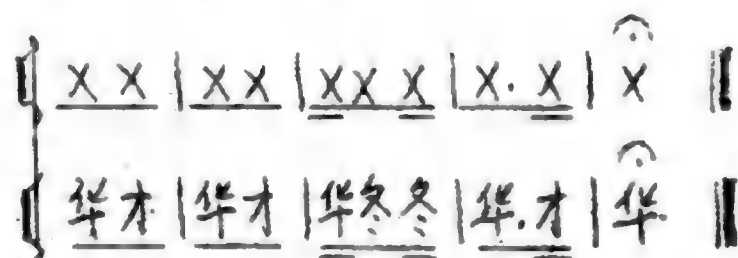 X X | X X | X X X | X . X | X
华 才 | 华 才 | 华 冬 冬 | 华 . 才 | 华